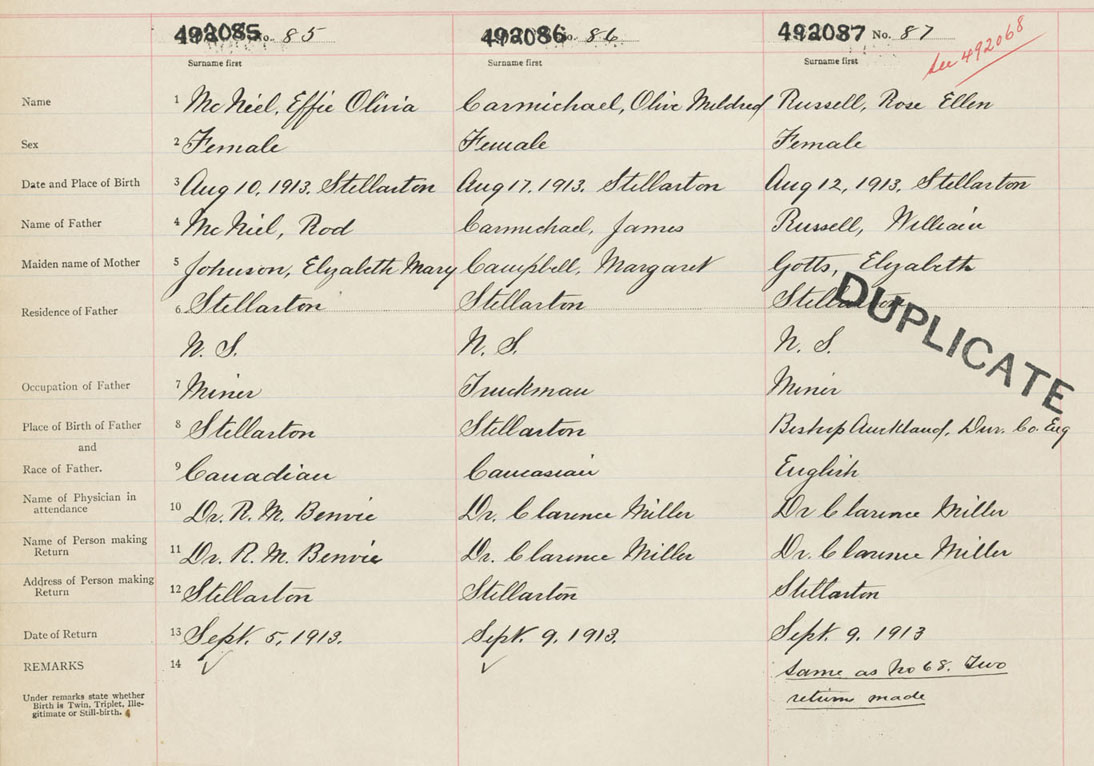 492085 No. 85 492086 No. 86 492087 No. 87 See 492068
Surname first Surname first Surname first
Name 1 McNiel, Effie Olivia Carmichael, Olive Mildred Russell, Rose Ellen
Sex 2 Female Female Female
Date and Place of Birth 3 Aug 10, 1913. Stellarton Aug 17, 1913. Stellarton Aug 12, 1913. Stellarton
Name of Father 4 McNiel, Rod Carmichael, James Russell, William
Maiden name of Mother 5 Johnson, Elyzabeth Mary Campbell, Margaret Gotts, Elyzabeth
Residence of Father 6 Stellarton Stellarton Stellarton
N. S. N. S. N. S.
DUPLICATE
Occupation of Father 7 Miner Truckman Miner
Place of Birth of Father 8 Stellarton Stellarton Bishop Auckland, Dur. Co. Eng
and
Race of Father. 9 Canadian Caucasian English
Name of Physician in
attendance 10 Dr. R. M. Benvie Dr. Clarence Miller Dr Clarence Miller
Name of Person making
Return 11 Dr. R. M. Benvie Dr. Clarence Miller Dr. Clarence Miller
Address of Person making
Return 12 Stellarton Stellarton Stellarton
Date of Return 13 Sept. 5, 1913. Sept. 9, 1913. Sept. 9. 1913
REMARKS 14 same as No 68. Two
return made
Under remarks state whether
Birth is Twin, Triplet, Ille-
gitimate or Still-birth.